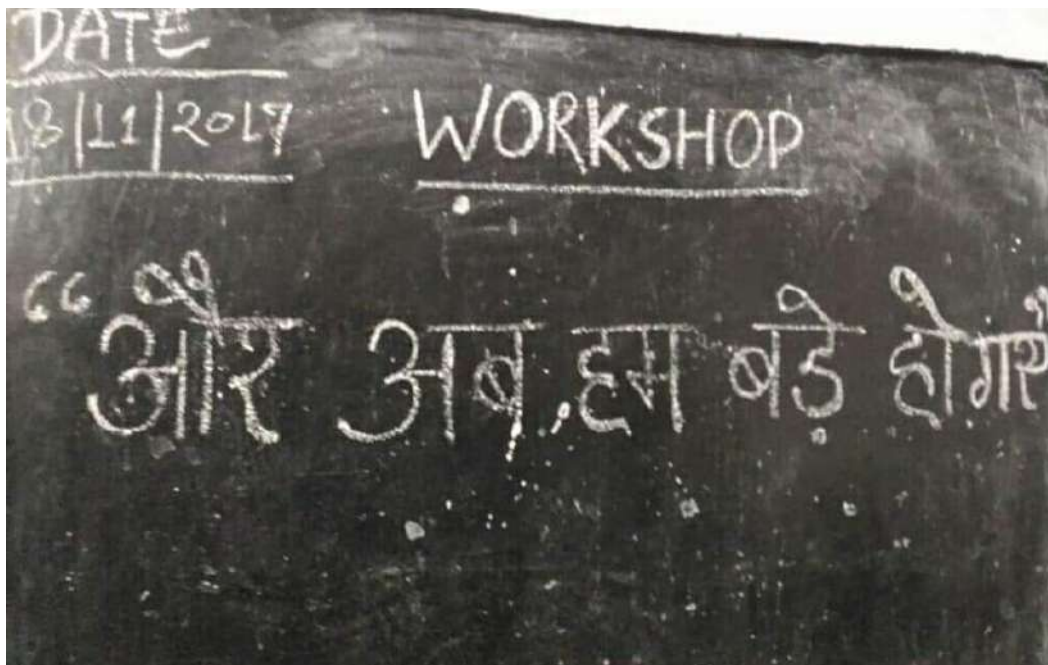 DATE
18|11|2017
WORKSHOP
“ और अब हम बड़े होगए